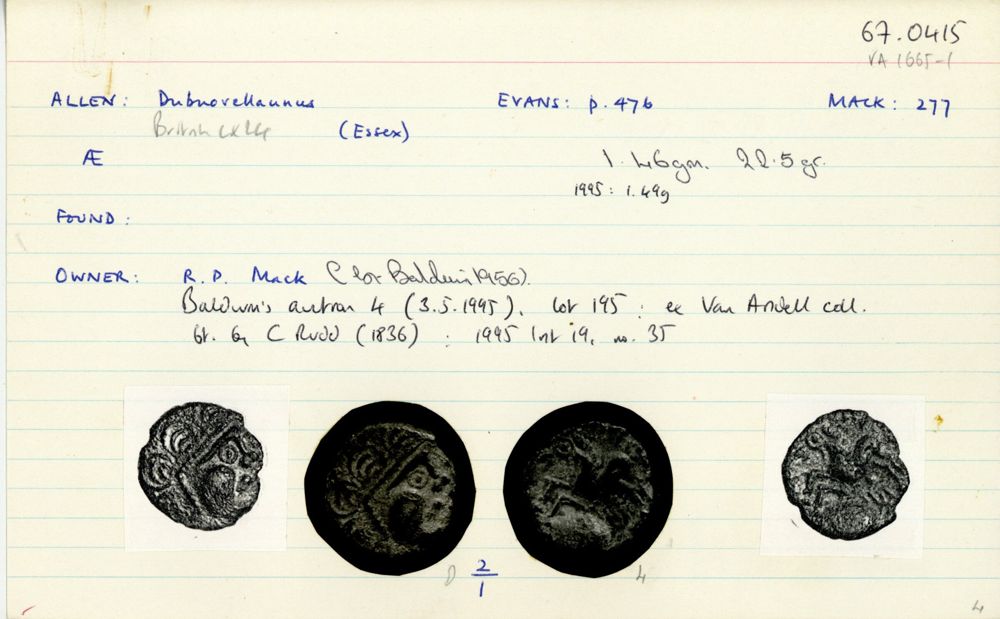 67.0415
VA 1665-1
ALLEN: Dubnovellaunus EVANS: p. 476 MACK: 277
British (Essex)
Æ 1.46gm. 22.5 gr.
1995: 1.49g
FOUND:
OWNER: R.P. Mack (Baldwin 1956).
Baldwin's auction 4 (3.5.1995), lot 195: ex Van Arsdell coll.
bt. by C Rudd (1836): 1995 list 19, no. 35
2
1
4
4